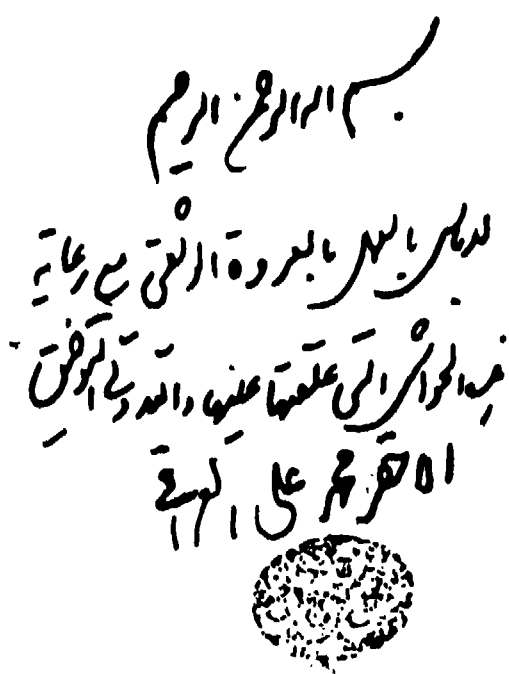 بسم الله الرحمن الرحيم
لا بأس بالعمل بالعروة الوثقى مع رعاية
هذه الحواشي التي علقتها عليها والله ولي التوفيق
الاحقر محمد علي الاراكي